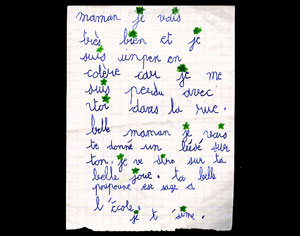 maman je vais
très bien et je
suis un pen en
colère car je me
suis perdu avec
toi dans la rue.
belle maman je vais
te donné un bésé sur
ton. je ve dire sur ta
belle joue. ta belle
poupoune est sage à
l'École.
je t'aime.